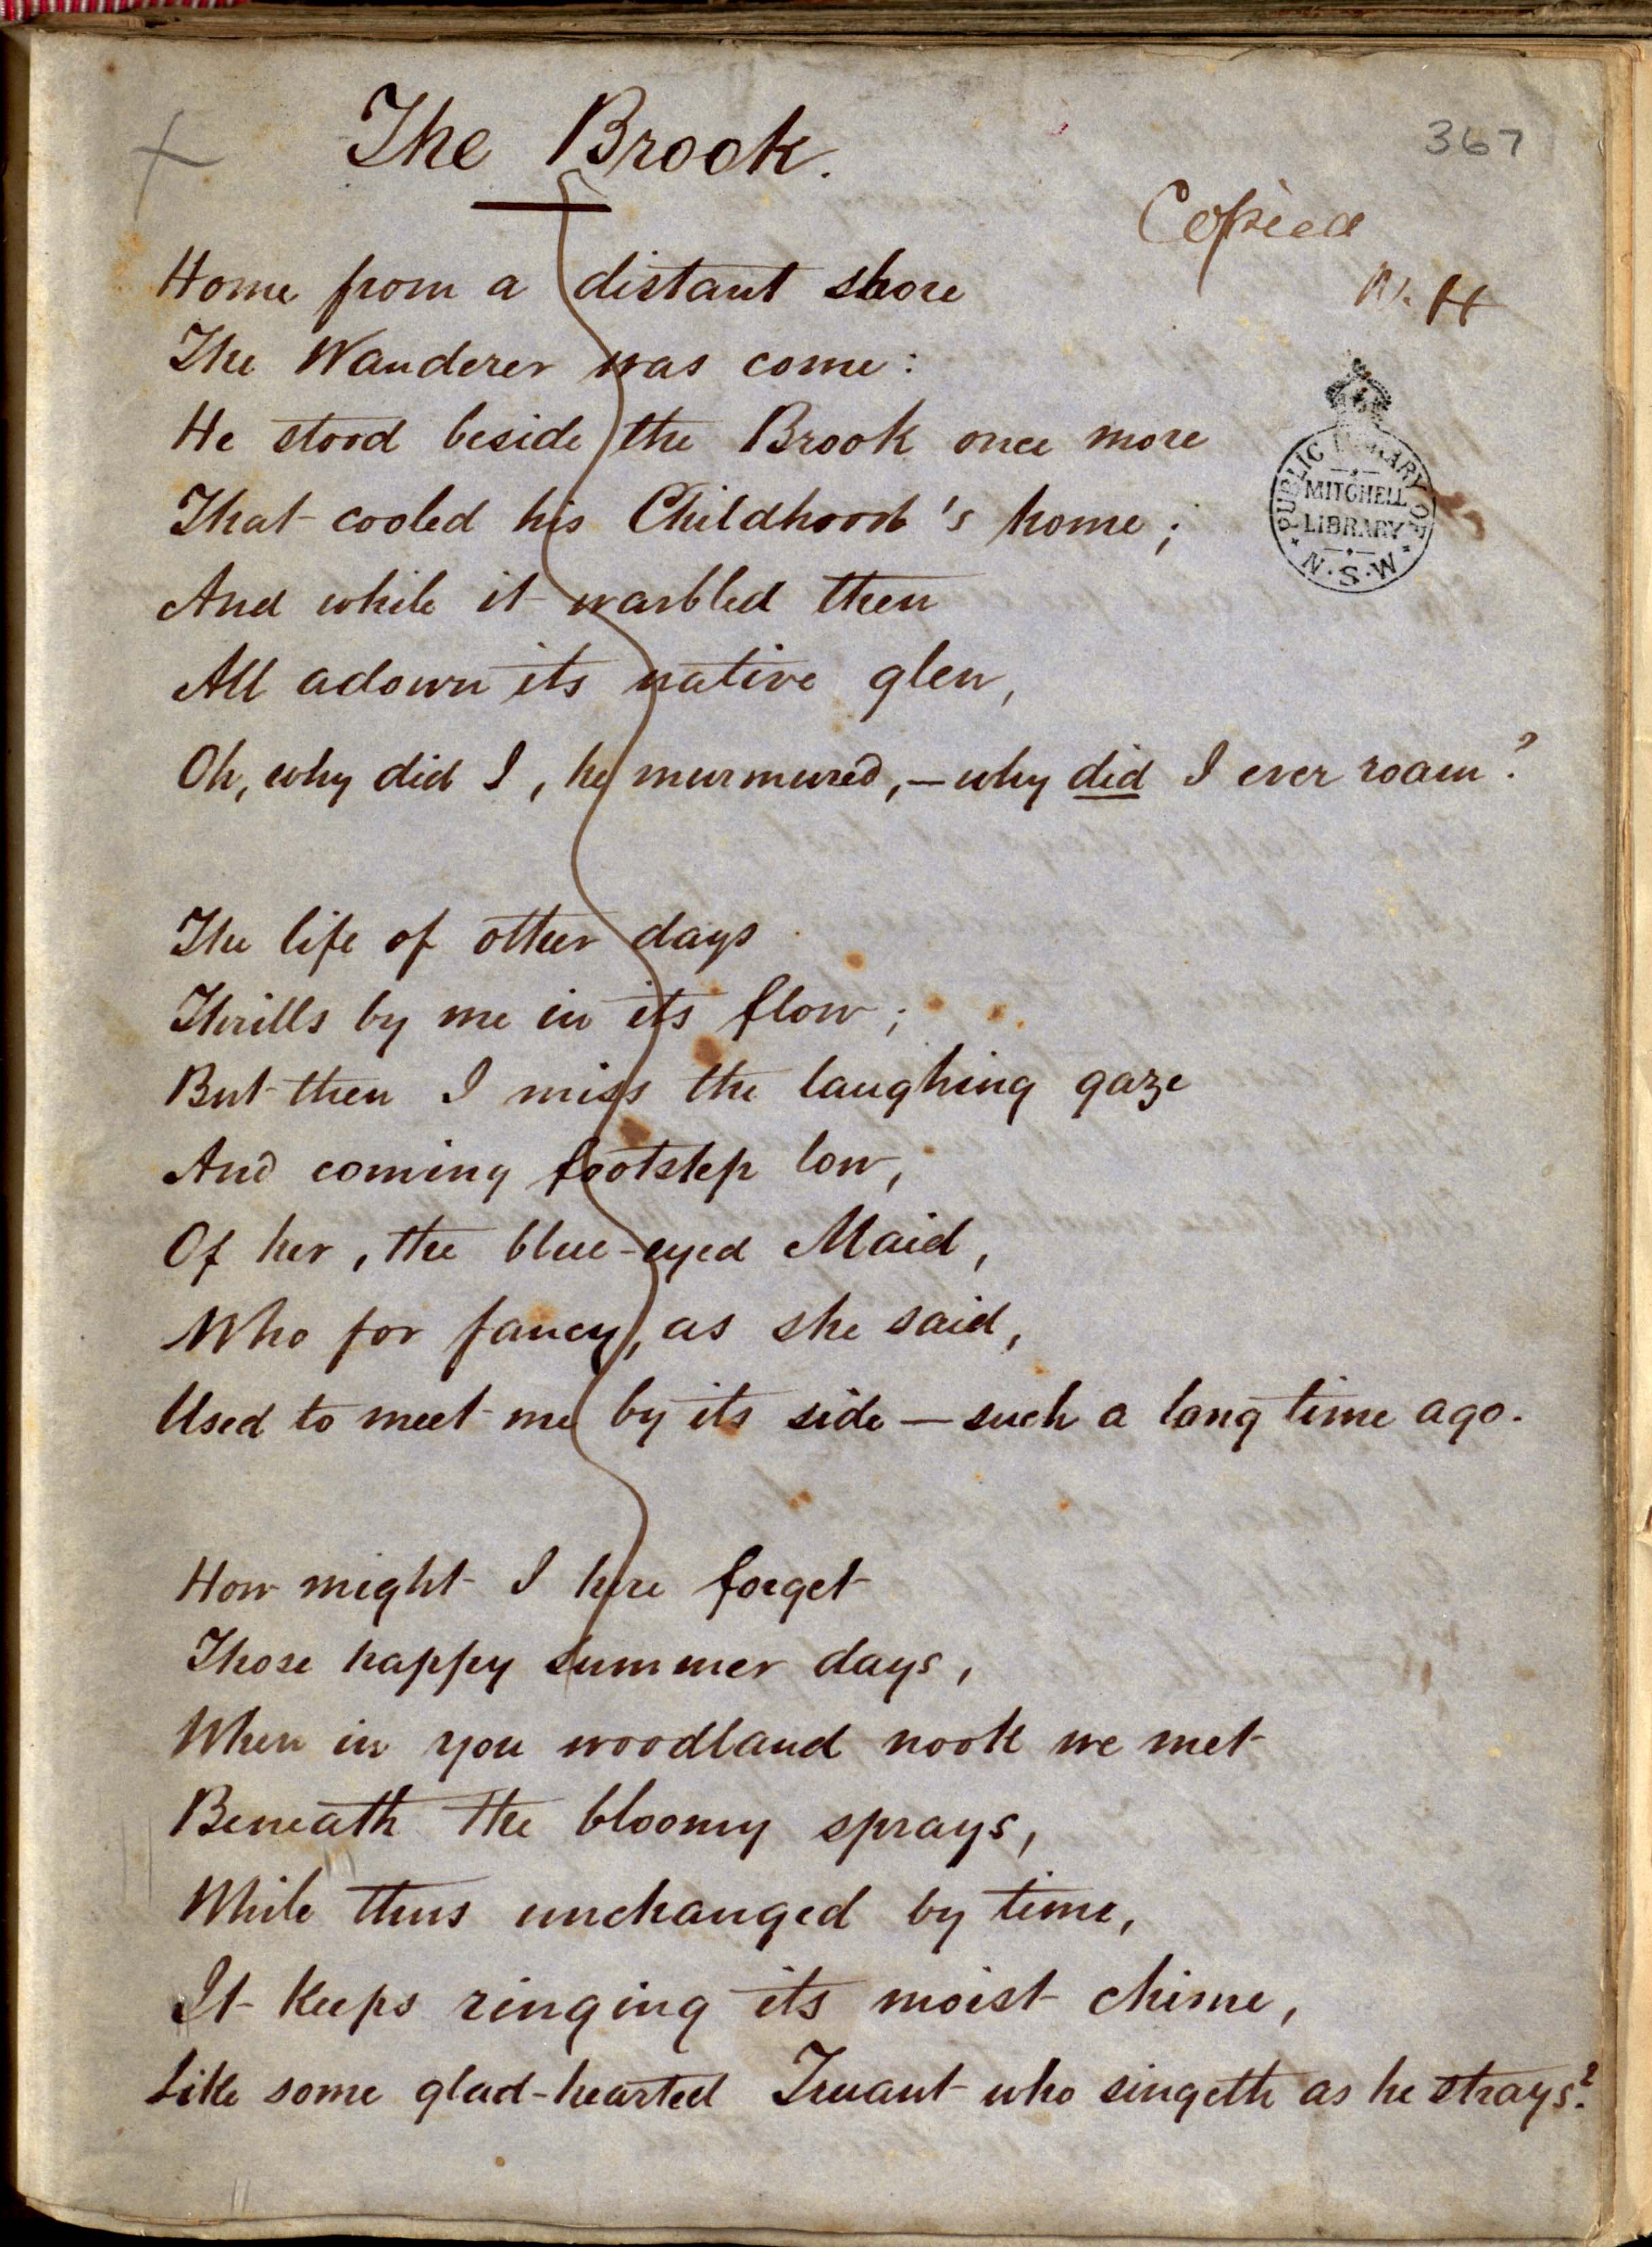 The Brook.
367
Copied
W. H
Home from a distant shore
The Wanderer was come:
He stood beside the Brook once more
That cooled his Childhood's home;
And while it warbled then
All adown its native glen,
Oh, why did I, he murmured, — why did I ever roam?
PUBLIC LIBRARY OF
MITCHELL
LIBRARY
N.S.W
The life of other days
Thrills by me in its flow;
But then I miss the laughing gaze
And coming footstep low,
Of her, the blue-eyed Maid,
Who for fancy, as she said,
Used to meet me by its side — such a long time ago.
How might I here forget
Those happy summer days,
When in yon woodland nook we met
Beneath the bloomy sprays,
While thus unchanged by time,
It keeps ringing its moist chime,
Like some glad-hearted Truant who singeth as he strays?